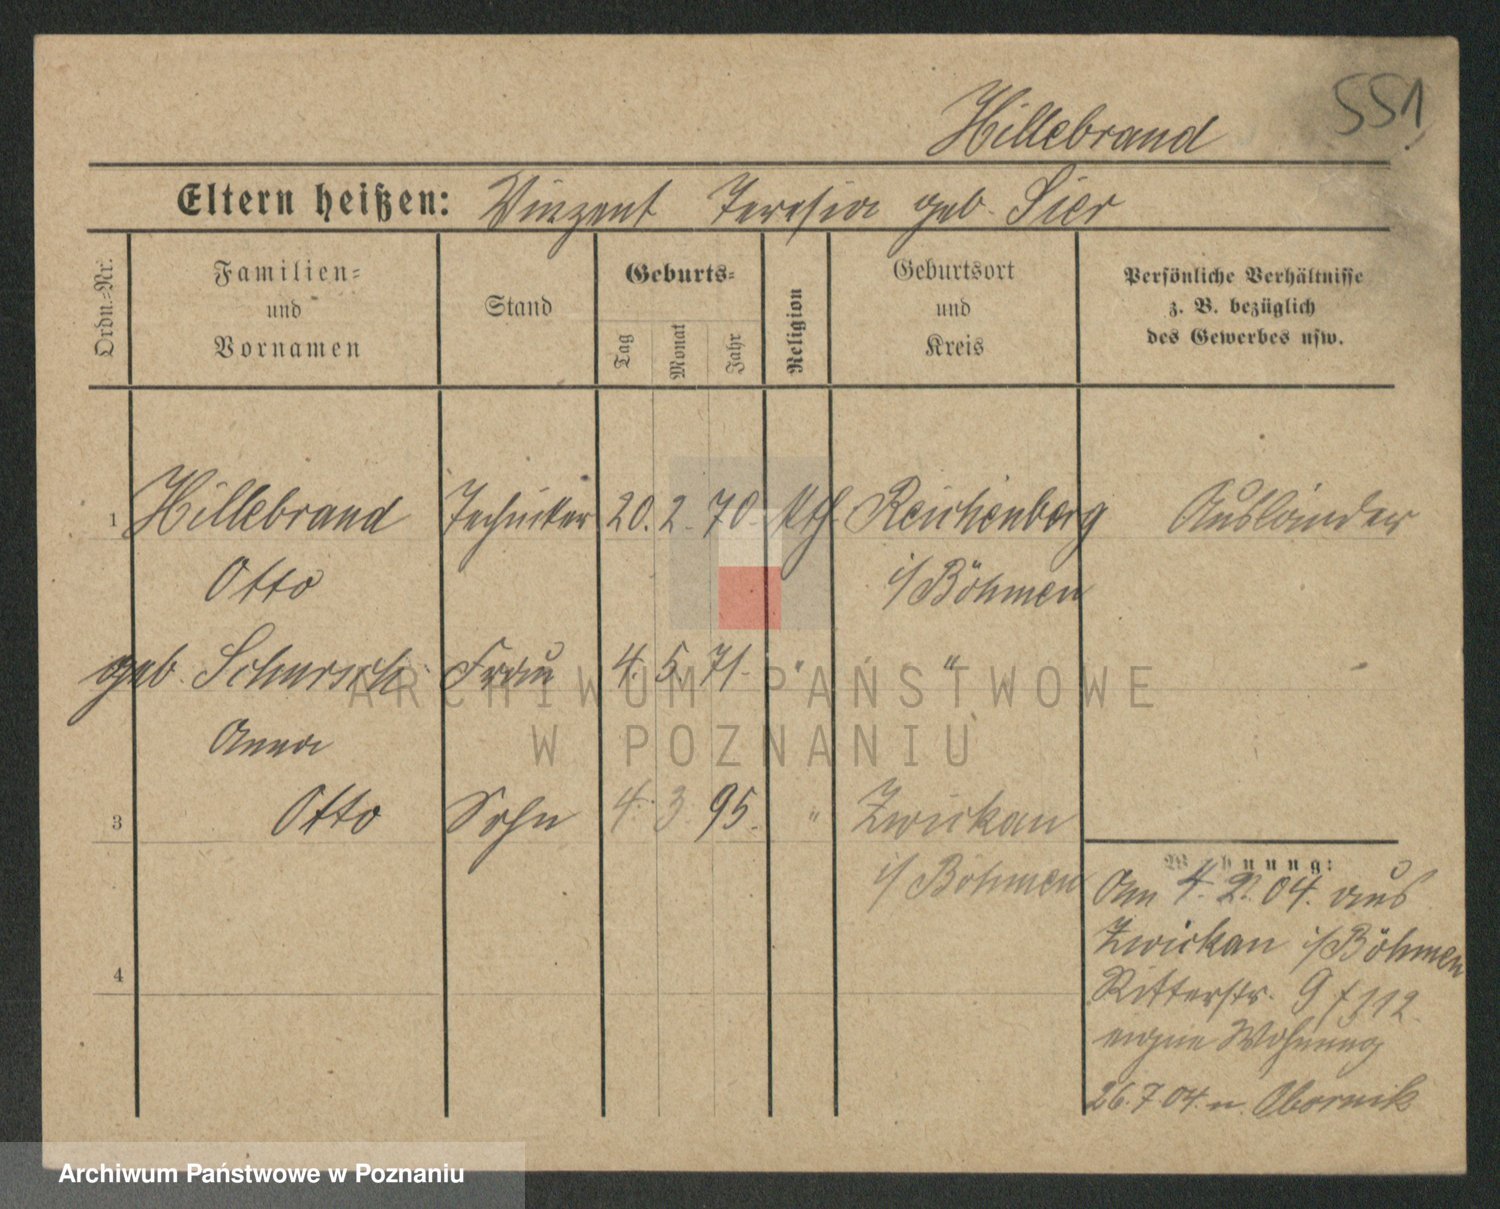 Hillebrand
551
Eltern heißen: Vinzent Teresia geb. Sier
Ordn.=Nr.
Familien=
und
Vornamen
Stand
Geburts=
Tag
Monat
Jahr
Religion
Geburtsort
und
Kreis
Persönliche Verhältnisse
z. B. bezüglich
des Gewerbes usw.
1 Hillebrand Techniker 20. 2. 70. kth. Reichenberg Ausländer
Otto i/Böhmen
geb. Schursch Frau 4. 5. 71. " "
Anna
3 Otto Sohn 4. 3. 95. " Zwickau
i/Böhmen
4
Wohnung:
Am 4. 2. 04. aus
Zwickau i/Böhmen
Ritterstr. 9
eigne Wohnung
26.7.04. n. Obornik
ARCHIWUM PAŃSTWOWE
W POZNANIU
Archiwum Państwowe w Poznaniu